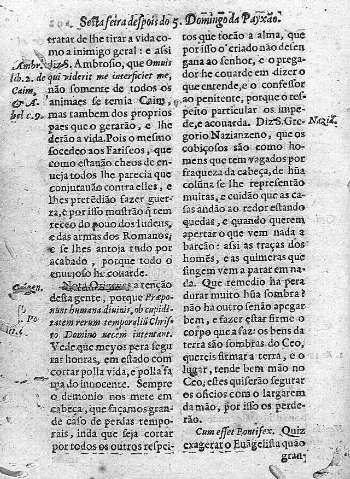 Sesta feira despois do 5. Domingo da Payxão.
tratar de lhe tirar a vida co
mo a inimigo geral: e assi
S. Ambrosio, que Omnis
lib. 2. de qui viderit me interficiet me,
Caim, não somente de todos os
& A- animaes se temia Caim,
bel c. 9. mas tambem dos proprios
paes que o gerarão, e lhe
derão a vida. Pois o mesmo
socedeo aos Fariseos, que
como estauão cheos de en-
ueja todos lhe parecia que
conjurauão contra elles, e
lhes pretẽdião fazer guer-
ra, e por isso mostrão q̃ tem
receo do pouo dos Iudeus,
e das armas dos Romanos,
e se lhes antoja tudo por
acabado, porque todo o
enuejoso he couarde.
Nota Origenes a tenção
desta gente, porque Præpo-
nunt humana diuinis, ob cupidi-
tatem rerum temporaliũ Chris-
to Domino necem intentant.
Vede que meyos pera segu-
rar honras, em estado com
cortar polla vida, e polla fa
ma do innocente. Sempre
o demonio nos mete em
cabeça, que façamos gran-
de caso de perdas tempo-
rais, inda que seja cortar
por todos os outros respei-
tos que tocão a alma, que
por isso o criado não desen
gana ao senhor, e o prega-
dor he couarde em dizer o
que entende, e o confessor
ao penitente, porque o res-
peito particular os impe-
de, e acouarda. Diz S. Gre-
gorio Nazianzeno, que os Naziã.
cobiçosos são como ho-
mens que tem vagados por
fraqueza da cabeça, de hũa
cousina se lhe representão
muitas, e cuidão que as ca-
sas andão ao redor estando
quedas, e quando querem
apertar o que vem nada a-
barcão: assi as traças dos
homẽs, e as quimeras que
fingem vem a parar em na-
da. Que remedio ha pera
durar muito hũa sombra?
não ha outro senão apegar
bem, e fazer estar firme o
corpo que a faz os bens da
terra são sombras do Ceo,
quereis firmar a terra, e o
lugar, tende bem mão no
Ceo, estes quiserão segurar
os oficios com o largarem
da mão, por isso os perde-
rão.
Cum esset Pontifex. Quiz
exagerar o Euãgelista quão
gran-